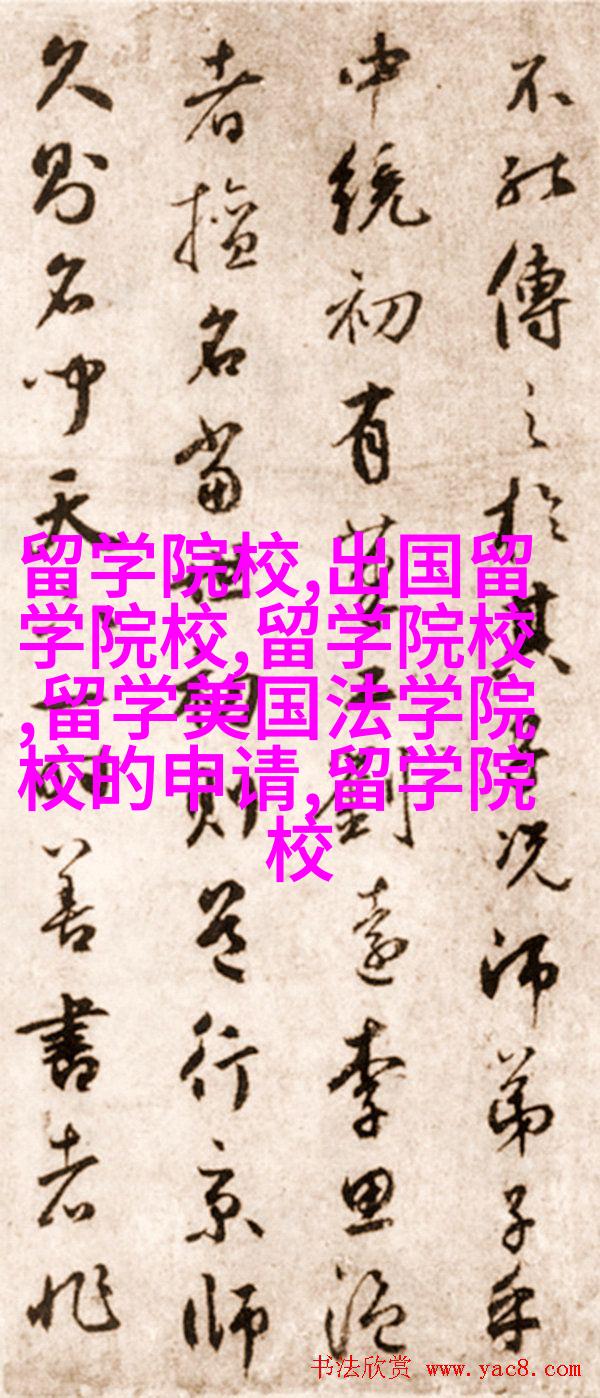 不能傳之於其子况師弟子乎
中統初有劉遠李思
者擅名當世則行京師
久則名中天善書者非
留学院校,出国留
学院校,留学院校
,留学美国法学院
校的申请,留学院
校
书法欣赏 www.yac8.com